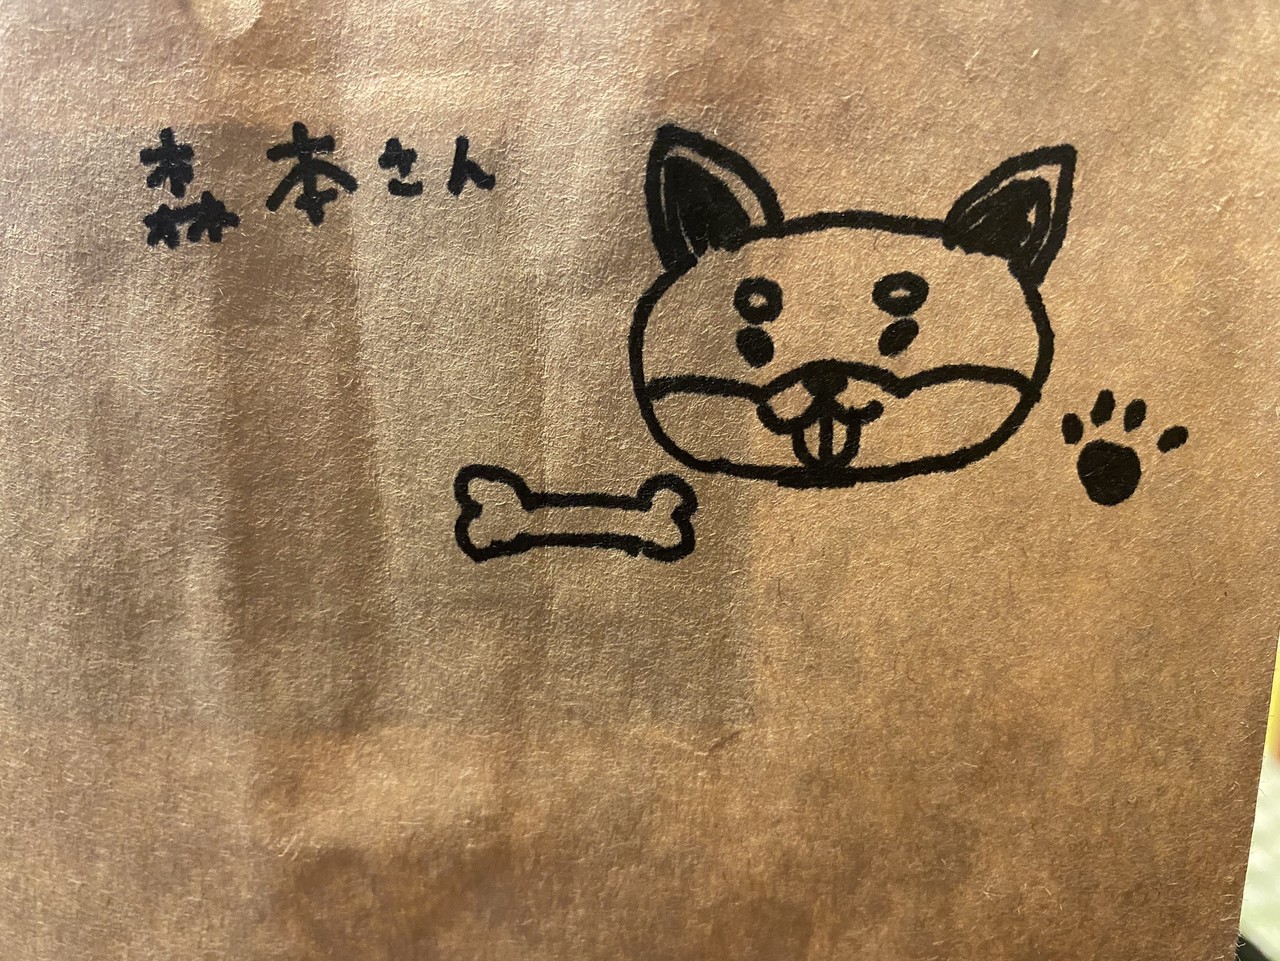 森本さん